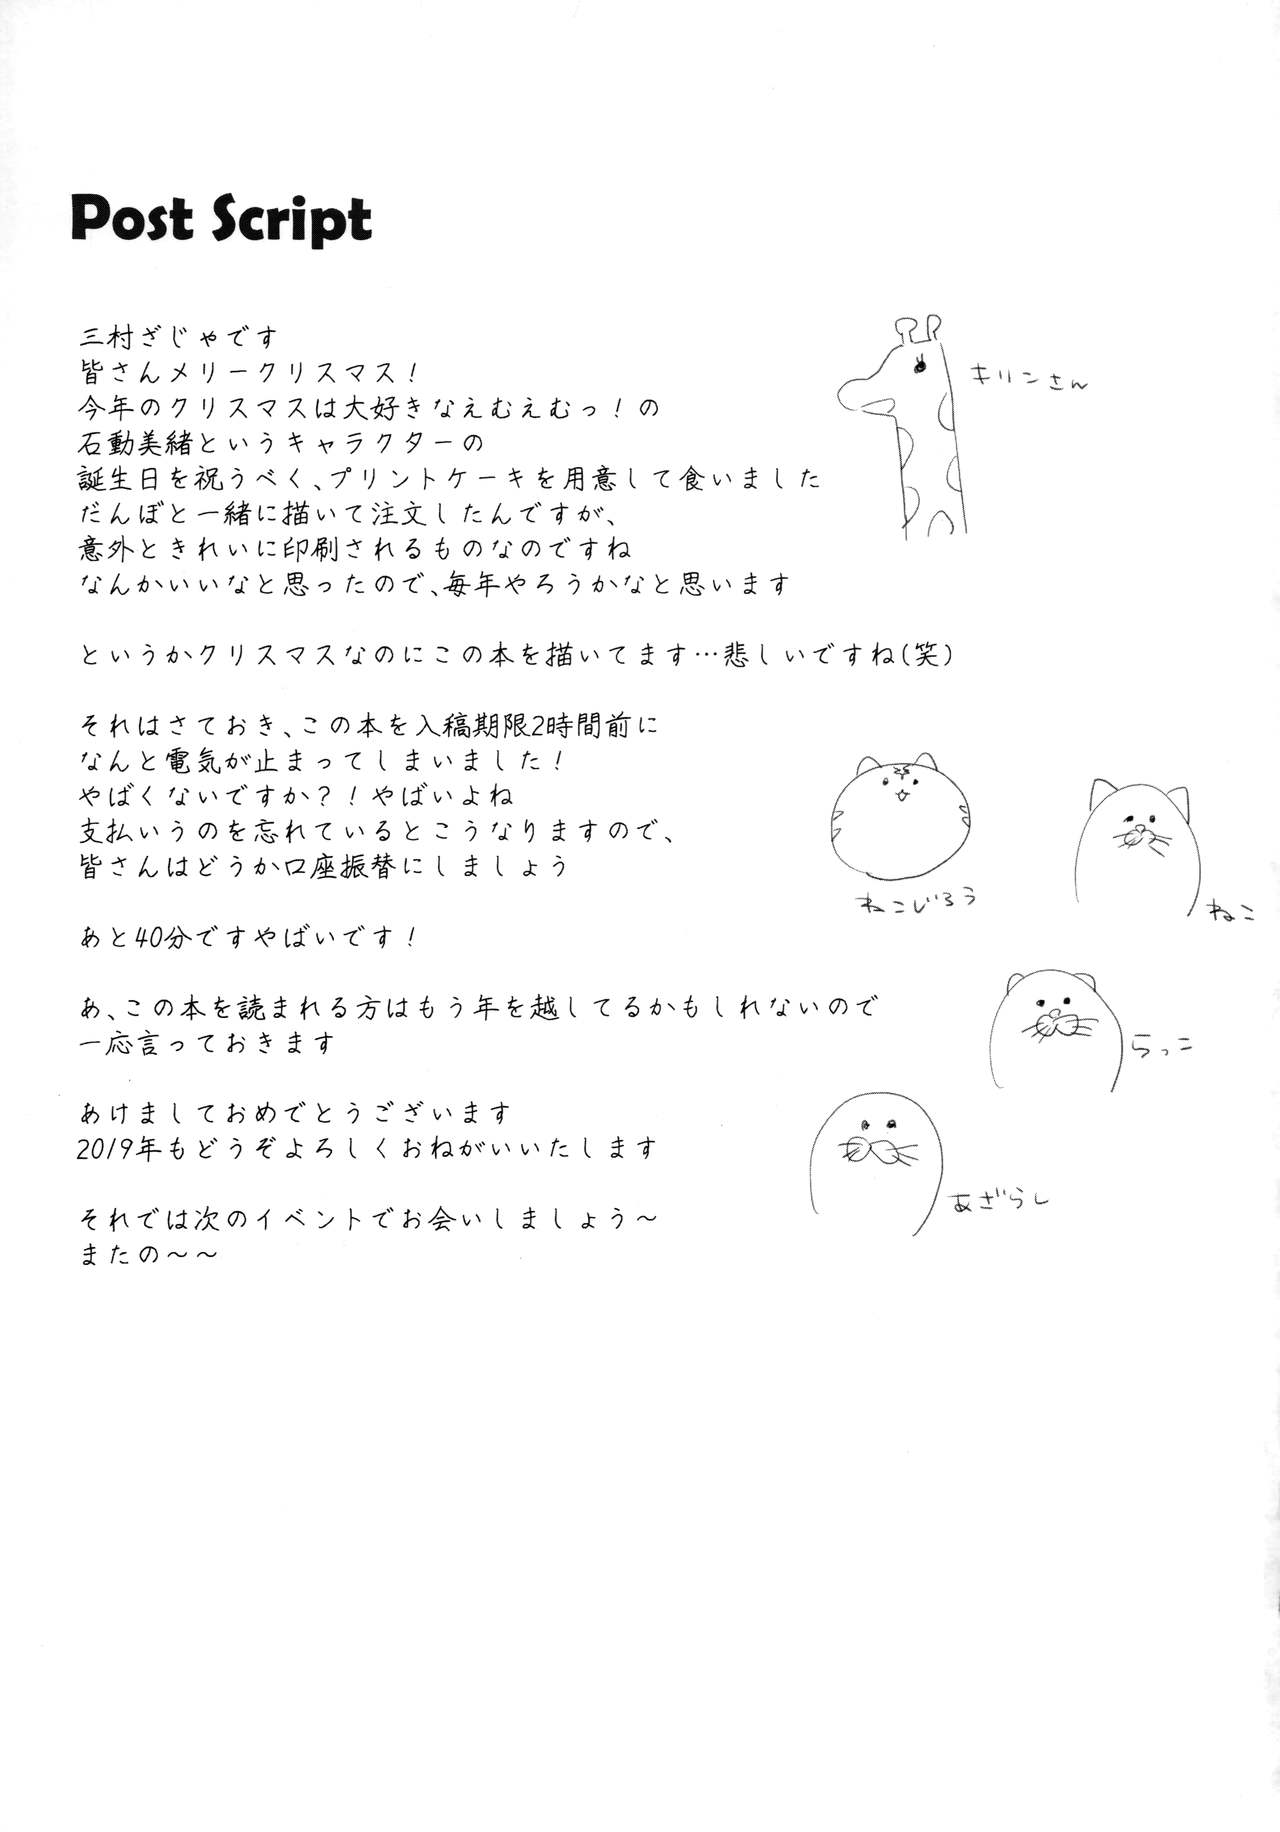 Post Script
三村ざじゃです
皆さんメリークリスマス！
今年のクリスマスは大好きなえむえむっ！の
石動美緒というキャラクターの
誕生日を祝うべく、プリントケーキを用意して食いました
だんぼと一緒に描いて注文したんですが、
意外ときれいに印刷されるものなのですね
なんかいいなと思ったので、毎年やろうかなと思います
というかクリスマスなのにこの本を描いてます…悲しいですね(笑)
それはさておき、この本を入稿期限2時間前に
なんと電気が止まってしまいました！
やばくないですか？！やばいよね
支払いうのを忘れているとこうなりますので、
皆さんはどうか口座振替にしましょう
あと40分ですやばいです！
あ、この本を読まれる方はもう年を越してるかもしれないので
一応言っておきます
あけましておめでとうございます
2019年もどうぞよろしくおねがいいたします
それでは次のイベントでお会いしましょう～
またの～～
キリンさん
ねこじろう
ねこ
らっこ
あざらし